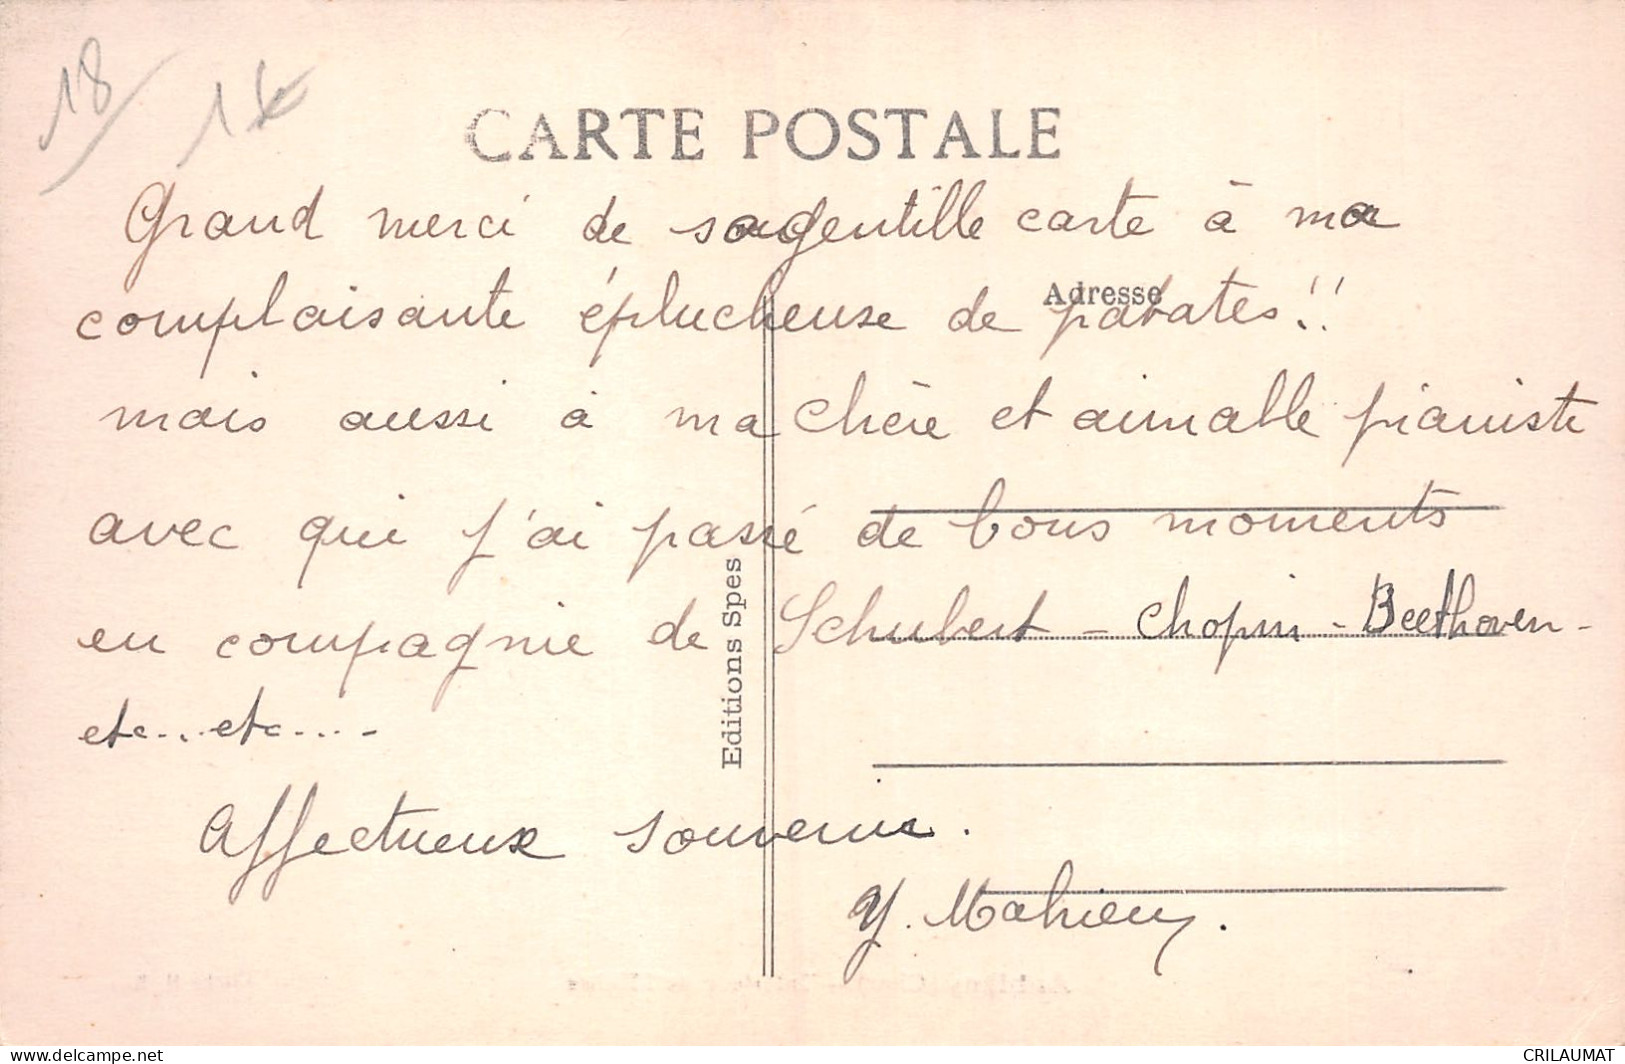 18 18
CARTE POSTALE
Grand merci de sa gentille carte à ma
complaisante éplucheuse de patates!!
Adresse
mais aussi à ma chère et aimable pianiste
avec qui j'ai passé de bons moments
en compagnie de Schubert - Chopin - Beethoven -
etc... etc....-
Editions Spes
Affectueux souvenir.
Y. Mahieu.
delcampe.net
CRILAUMAT